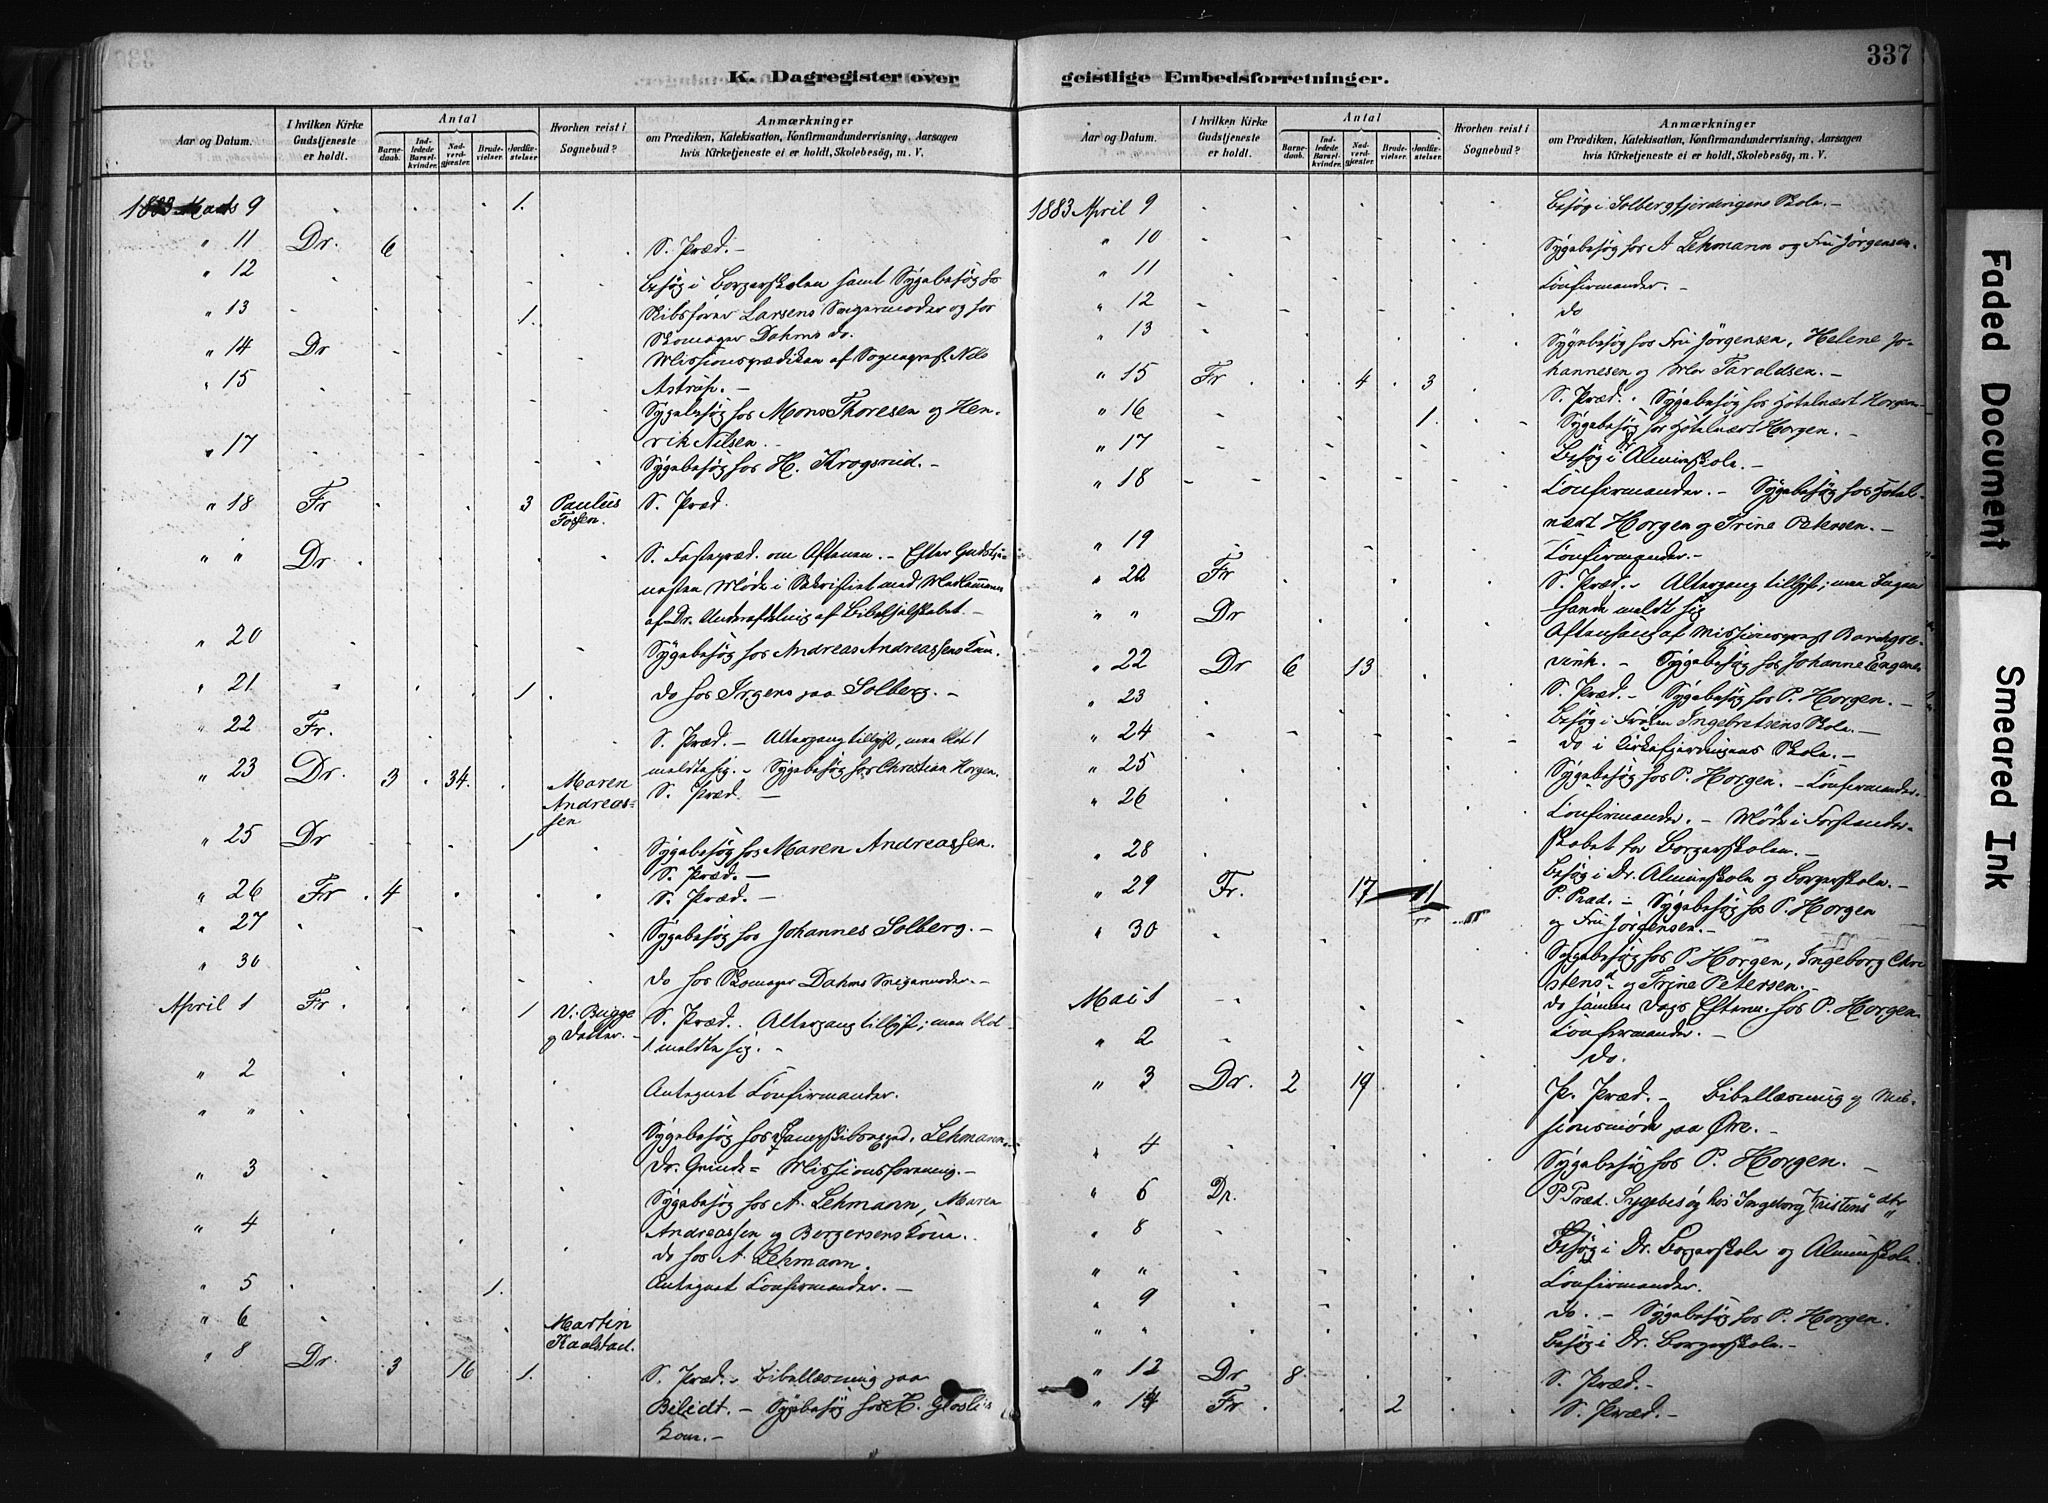 337
K. Dagregister over geistlige Embedsforretninger.
Aar og Datum.
I hvilken Kirke Gudstjeneste er holdt.
Antal
Barnedaab.
Indledede Barselkvinder.
Nadverdgjæster.
Brudevielser.
Jordfæstelser.
Hvorhen reist i Sognebud?
Anmærkninger
om Prædiken, Katekisation, Konfirmandundervisning, Aarsagen
hvis Kirketjeneste ei er holdt, Skolebesøg, m. V.
1883 Marts 9 1.
" 11 Dr. 6 S. Præd. –
" 12 Besøg i Borgerskolen samt Sygebesøg hos
" 13 1. Skibsfører Larsens Svigermoder og hos
Skomager Dahms do.
" 14 Dr Missionsprædiken af Sognepræst Nils
Astrup. –
" 15 Sygebesøg hos Mons Thoresen og Hen-
rik Nilsen. –
" 17 Sygebesøg hos H. Krogsrud. –
" 18 Fr 3 Paulus Fossen. S. Præd.
" " Dr S. Fastepræd. om Aftenen. – Efter Gudstje-
nesten Møde i Sakristiet med Medlemmer
af Dr. Underafdeling af Bibelselskabet –
" 20 Sygebesøg hos Andreas Andreassens Kone.
" 21 1 do hos Irgens paa Solberg. –
" 22 Fr. S. Præd. – Altergang tillyst, men blot 1
meldte sig. – Sygebesøg hos Christian Horgen.
" 23 Dr. 3 34. Maren Andreas=sen S. Præd. –
" 25 Dr 1 Sygebesøg hos Maren Andreassen.
S. Præd. –
" 26 Fr 4 S. Præd. –
" 27 Sygebesøg hos Johannes Solberg. –
" 30 do hos Skomager Dahms Svigermoder. –
April 1 Fr 1 V. Bugge og Datter. – S. Præd. . Altergang tillyst; men blot
1 meldte sig. –
" 2 Antegnet Confirmander.
" " Sygebesøg hos Lehmann. –
" 3 Do. Grinde = Missionsforening. –
Sygebesøg hos A. Lehmann, Maren
" 4 Andreassen og Borgersens Kone.
do hos A. Lehmann.
" 5 1. Antegnet Confirmander. –
" 6 Martin Kaalstad.
" 8 Dr. 3 16 1. S. Præd. – Bibellæsning paa
Bilidt. – Sygebesøg hos H. Gloslis
Kone. –
Aar og Datum.
I hvilken Kirke Gudstjeneste er holdt.
Antal
Barnedaab.
Indledede Barselkvinder.
Nadverdgjæster.
Brudevielser.
Jordfæstelser.
Hvorhen reist i Sognebud?
Anmærkninger
om Prædiken, Katekisation, Konfirmandundervisning, Aarsagen
hvis Kirketjeneste ei er holdt, Skolebesøg, m. V.
1883 April 9 Besøg i Solbergfjerdingens Skole. –
" 10 Sygebesøg hos A Lehmann og Fru Jørgensen.
" 11 Confirmander. –
" 12 do
" 13 Sygebesøg hos Fru Jørgensen, Helene Jo-
hannesen og Mor Taraldsen. –
" 15 Fr 4 3 S. Præd. . Sygebesøg hos Hotelvært Horgen –
" 16 1. Sygebesøg hos Hotelvært Horgen. –
" 17 Besøg i Dr Almueskole. –
" 18 Confirmander. – Sygebesøg hos Hotel-
vært Horgen og Trine Petersen. –
" 19 Confirmander. –
" 20 Fr S. Præd. . Altergang tillyst; men Ingen
havde meldt sig
" " Dr Aftensang af Missionspræst
vink. – Sygebesøg hos Johanne Engene.
" 22 Dr 6 13 S. Præd. – Sygebesøg hos P. Horgen. –
" 23 Besøg i Frøken Ingebretsens Skole. –
" 24 do i Kirkefjerdingens Skole. –
" 25 Sygebesøg hos P. Horgen. – Confirmander.
" 26 Confirmander. – Møde i Forstander-
skabet for Borgerskolen. –
" 28 Besøg i Dr. Almueskole og Borgerskole. –
" 29 Fr. 17 1 P. Præd. – Sygebesøg hos P. Horgen
og Fru Jørgensen. –
" 30 Sygebesøg hos P. Horgen, Ingeborg Chri-
stensd og Trine Petersen. –
Mai 1 do samme Dags Efterm. hos P. Horgen
Confirmander. –
" 2 do.
" 3 Dr. 2 19 P. Præd. – Bibellæsning og Mis-
sionsmøde paa Øren. –
" 4 Sygebesøg hos P. Horgen. –
" 6 Dr. P Præd. Sygebesøg hos Ingeborg Kristensdtr
" 8 Besøg i Dr. Borgerskole og Almueskole.
" " Confirmander.
" 9 do. – Sygebesøg hos P. Horgen.
" " Besøg i Dr. Borgerskole. –
" 12 Dr 8 S. Præd. –
" 14 Fr 2 S. Præd. –
Faded Document
Smeared Ink